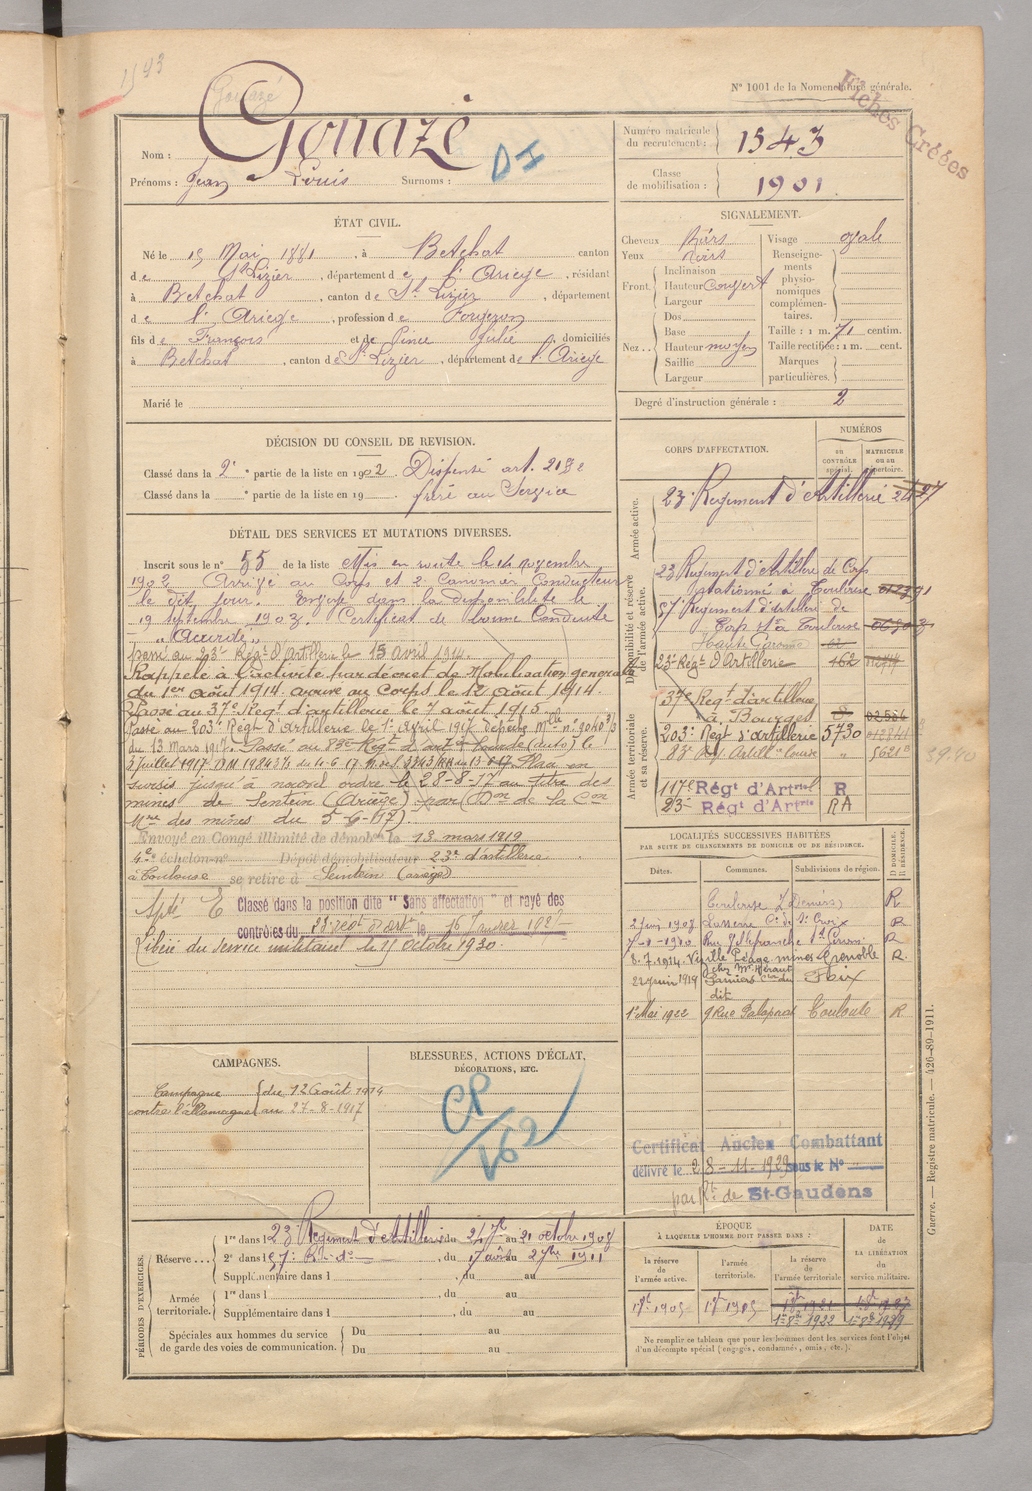 1543
Gouazé
N° 1001 de la Nomenclature générale.
Fiches Créées
Nom : Gouazé
DI
Prénoms : Jean Louis Surnoms :
Numéro matricule du recrutement : 1543
Classe de mobilisation : 1901
ÉTAT CIVIL.
Né le 15 Mai 1881, à Betchat canton
de St Lizier, département de l'Ariège, résidant
à Betchat, canton de St Lizier, département
de l'Ariège, profession de Forgeron
fils de François et de Julie, domiciliés
à Betchat, canton de St Lizier, département de l'Ariège
Marié le
SIGNALEMENT.
Cheveux Noirs
Yeux Noirs
Front. Inclinaison
Hauteur Couvert
Largeur
Nez.. Dos
Base
Hauteur moyen
Saillie
Largeur
Visage ovale
Renseignements physionomiques complémentaires.
Taille : 1 m. 71 centim.
Taille rectifiée : 1 m. cent.
Marques particulières.
Degré d'instruction générale : 2
DÉCISION DU CONSEIL DE REVISION.
Classé dans la 2e partie de la liste en 1902 Dispensé art. 21
Classé dans la partie de la liste en 19 frère au Service
DÉTAIL DES SERVICES ET MUTATIONS DIVERSES.
Inscrit sous le n° 55 de la liste Mis en route le 14 novembre
1902 Arrivé au Corps et 2e Canonnier Conducteur
le dit jour. Envoyé dans la disponibilité le
19 septembre 1903. Certificat de bonne Conduite
"Accordé"
passé au 23e Régt d'Artillerie le 15 avril 1914.
Rappelé à l'activité par décret de Mobilisation générale
du 1er août 1914. arrivé au Corps le 12 Août 1914.
Passé au 37e Régt d'artillerie le 7 août 1915.
Passé au 203e Régt d'Artillerie le 1er Avril 1917 dépêche Mlle n° 9040 3/3
du 13 Mars 1917. Passé au 83e Régt d'art Lourde (auto) le
2 juillet 1917 Placé en
sursis jusqu'à nouvel ordre le 28-8-17 au titre des
mines de Sentein (Ariège) par (Don de la Con
Mre des mines du 5-9-17).
Envoyé en Congé illimité de démob. le 13 mars 1919
4e échelon n° Dépôt démobilisateur 23e d'artillerie
à Toulouse se retire à Sentein (ariège)
Apté E Classé dans la position dite "Sans affectation" et rayé des
contrôles du 28e régt d'art le 16 Janvier 1927
Libéré du service militaire le 15 octobre 1930.
CORPS D'AFFECTATION.
NUMÉROS
au CONTRÔLE spécial.
MATRICULE ou au répertoire.
Armée active.
23e Régiment d'Artillerie
Disponibilité et réserve de l'armée active.
23e Régiment d'Artillerie de Corps
stationné à Toulouse
57e Régiment d'Artillerie de
Corps à Toulouse
Haute Garonne
23e Régt d'Artillerie 462
Armée territoriale et sa réserve.
37e Régt d'artillerie
à Bourges
203e Régt d'artillerie 5730
83e Rég Artillie lourde " 5621
39.40
117e Régt d'Artrie R
23e Régt d'Artrie RA
LOCALITÉS SUCCESSIVES HABITÉES
PAR SUITE DE CHANGEMENTS DE DOMICILE OU DE RÉSIDENCE.
Dates. Communes. Subdivisions de région. D DOMICILE. R RÉSIDENCE.
Toulouse R
2 juin 1908 Lasserre Cn de Ste Croix R
7-1-1910 Rue Villefranche St Girons R
8.7.1914. Vizille Péage mines Grenoble R.
22 juin 1919 Foix
dit
1er Mai 1922 9 Rue Palaprat Toulouse R
CAMPAGNES.
Campagne contre l'allemagne du 12 Août 1914
au 27-8-1917
BLESSURES, ACTIONS D'ÉCLAT,
DÉCORATIONS, ETC.
CP/262
Certificat Ancien Combattant
délivré le 28-11-1929 sous le N°
par Rt de St-Gaudens
PÉRIODES D'EXERCICES.
Réserve.... 1re dans l 23e Régiment d'Artillerie du au 21 octobre 1908
2e dans l 57e Rt do du août au 2 7bre 1911
Supplémentaire dans l , du au
Armée territoriale. 1re dans l , du au
Supplémentaire dans l , du au
Spéciales aux hommes du service de garde des voies de communication. Du au
Du au
ÉPOQUE
À LAQUELLE L'HOMME DOIT PASSER DANS :
la réserve de l'armée active.
l'armée territoriale.
la réserve de l'armée territoriale
DATE de LA LIBÉRATION du service militaire.
1922
Ne remplir ce tableau que pour les hommes dont les services font l'objet
d'un décompte spécial (engagés, condamnés, omis, etc.).
Guerre. — Registre matricule. — 426-89-1911.